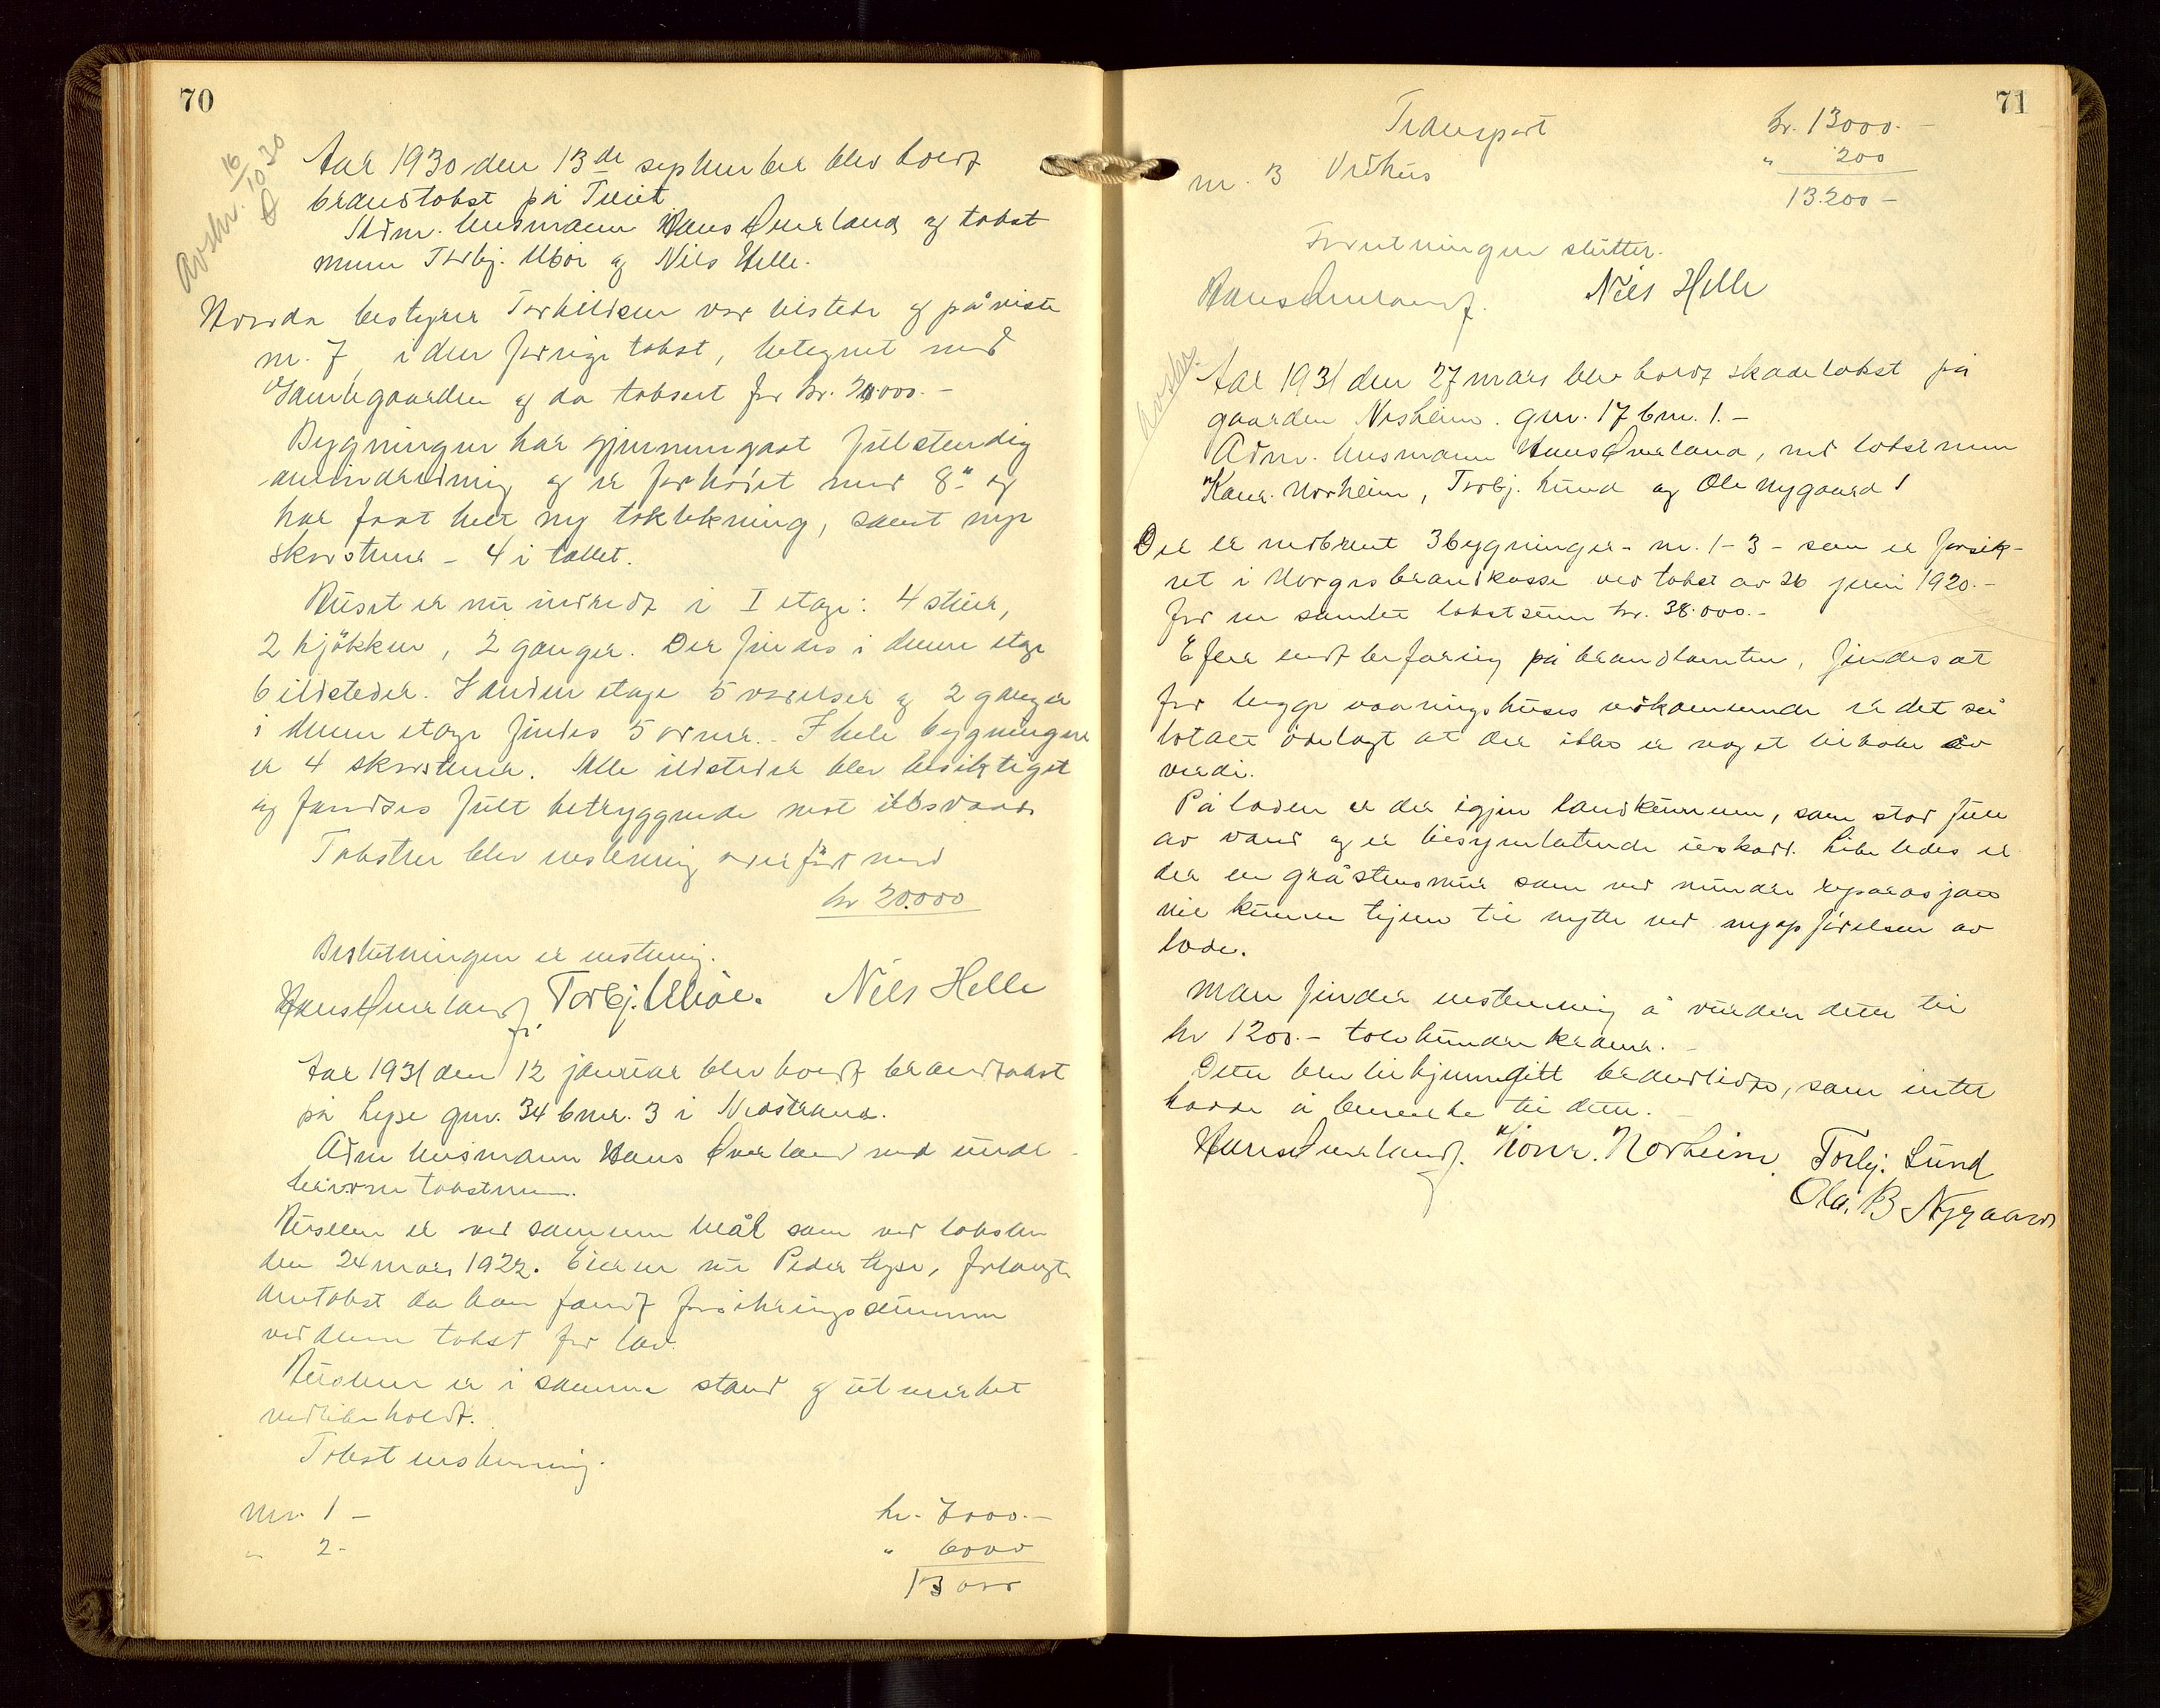 70
Avskr. 16/10 30
Aar 1930 den 13de september blev holdt
brandtakst på Tveit
Adm. lensmann Hans Øverland og takst
menn Torbj. Ubøe og Nils Helle.
bestyrer Torkildsen var tilstede og påviste
nr. 7 i den forrige takst, betegnet med
Gamlegaarden og da taksert for kr.
Bygningen har gjennemgaat fuldstendig
omindredning og er forhøiet med 8" og
har faat helt ny taktekning, samt nye
skorstene - 4 i tallet.
Huset er nu indredt i I etage: 4 stuer,
2 kjøkken, 2 ganger. Der findes i denne etage
6 ildsteder. I anden etage 5 værelser og 2 ganger
i denne etage findes 5 ovner. I hele bygningen
er 4 skorstene. Alle ildsteder blev besiktiget
og fandtes fult betryggende mot ildsvaade
Taksten blev enstemmig ført med
kr 20.000
Beslutningen er enstemmig.
Hans Øverland Torbj. Ubøe. Nils Helle
Aar 1931 den 12 januar blev holdt brandtakst
på Lepsø gnr. 34 bnr. 3 i Nedstrand.
Adm lensmann Hans Øverland med under
tegnede takstmenn.
Husene er ved samme mål som ved taksten
den 24 mars 1922. Eieren nu Peder forlangte
takst da han fandt forsikringssummen
ved denne takst for lav.
Husene er i samme stand og utmerket
vedlikeholdt.
Takst enstemmig.
Nr. 1 - kr. 7000.-
" 2 - " 6000
13000
71
Transport kr. 13000.-
nr. 3 Vedhus " 200
13.200 -
Forretningen slutter.
Hans Øverland. Nils Helle
Avskr.
Aar 1931 den 27 mars blev holdt skadetakst på
gaarden Nesheim. gnr. 17 bnr. 1.-
Adm. lensmann Hans Øverland, med takstmenn
Konr. Norheim, Torbj. Lund og Ole Nygaard
Der er nedbrent 3 bygninger - nr. 1-3 - som er forsik-
ret i Norges brandkasse ved takst av 26 juni 1920.-
for en samlet takstsum kr. 38.000.-
Efter endt befaring på brandtomten, findes at
for begge vaaningshuses vedkommende er det så
totalt ødelagt at der ikke er noget tilbake av
verdi.
På loden er der igjen som stod full
av vand og er tilsynelatende uskadt. Likeledes er
der en gråstensmur som ved mindre reparasjon
vil kunne tjene til nytte ved nyopførelsen av
lode.
Man finder enstemmig å vurdere dette til
kr 1200.- tolvhundre kroner. -
Dette blev tilkjennegitt brandlidte, som intet
hadde å bemerke til dette. -
Hans Øverland. Konr. Norheim. Torbj. Lund
Ola. B Nygaard